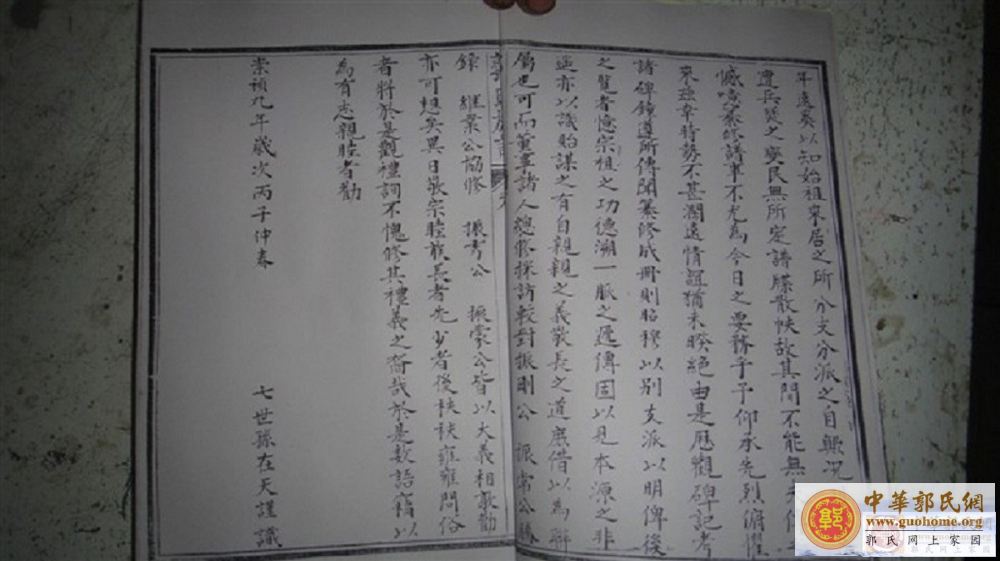 年遠矣以知始祖來居之所分支分派之自歟況
遭兵燹之變民無所定譜牒散帙故其間不能無
憾焉纂修譜事不尤為今日之要務乎予仰承先烈俯懼
來茲幸時勢不甚濶遠情誼猶未暌絕由是歷觀碑記考
諸碑鐘遵所傳聞纂修成冊則昭穆以別支派以明俾後
之覽者憶宗祖之功德溯一脈之遞傳固以見本源之非
遙亦以識貽謀之有自親親之義敬長之道庶借以為聯
屬也可而董事諸人總修採訪較對振剛公 振常公
錄 繼業公協修 振秀公 振蒙公皆以大義相敦勸
亦可想矣異日敬宗睦族長者先少者後秩秩雍雍問俗
者將於是觀禮詞不愧修其禮義之裔哉於是數語竊以
為有志親睦者勸
崇禎九年歲次丙子仲春 七世孫在天謹識
中華郭氏網
www.guohome.org
郭氏网上家园